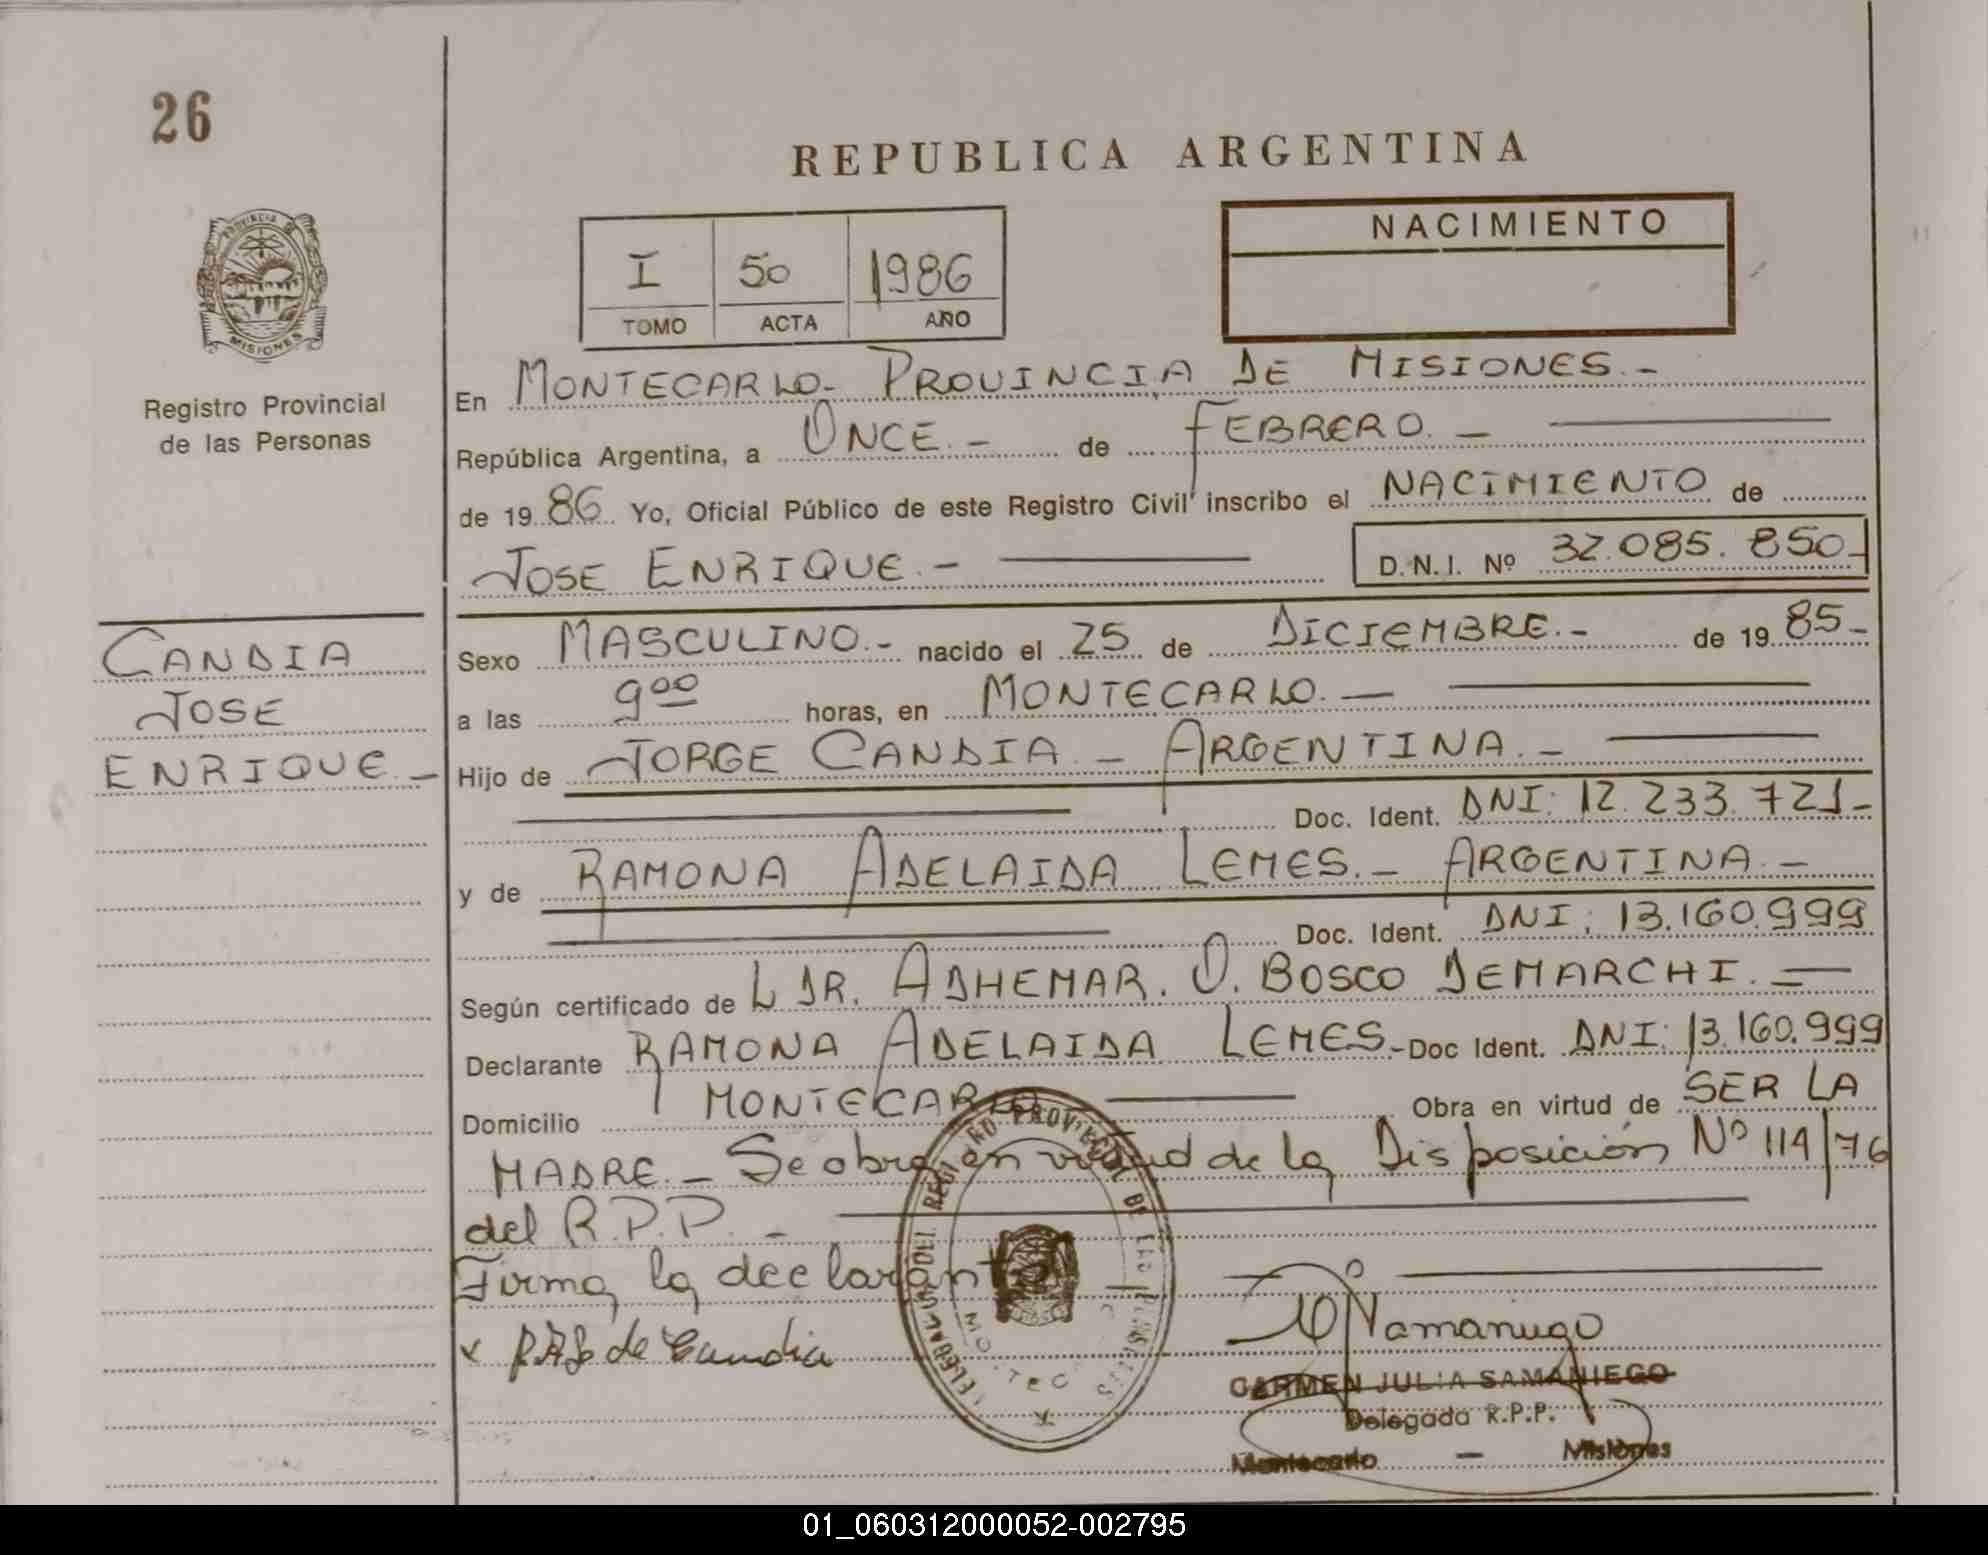 26
REPUBLICA ARGENTINA
PROVINCIA DE
MISIONES
Registro Provincial
de las Personas
I 50 1986
TOMO ACTA AÑO
NACIMIENTO
En MONTECARLO- PROVINCIA DE MISIONES.-
República Argentina, a ONCE.- de FEBRERO.-
de 1986 Yo, Oficial Público de este Registro Civil inscribo el NACIMIENTO de
JOSE ENRIQUE.- D.N.I. Nº 32.085.850-
CANDIA
JOSE
ENRIQUE.-
Sexo MASCULINO.- nacido el 25 de DICIEMBRE.- de 1985-
a las 9ºº horas, en MONTECARLO.-
Hijo de JORGE CANDIA.- ARGENTINA.-
Doc. Ident. DNI: 12.233.721-
y de RAMONA ADELAIDA LEMES.- ARGENTINA.-
Doc. Ident. DNI: 13.160.999
Según certificado de L DR. ADHEMAR. O. BOSCO DEMARCHI.-
Declarante RAMONA ADELAIDA LEMES.- Doc Ident. DNI: 13.160.999
Domicilio MONTECARLO Obra en virtud de SER LA
MADRE.- Se obra en virtud de la Disposición Nº 114/76
del R.P.P.-
Firma la declarante
x RAL de Candia
CARMEN JULIA SAMANIEGO
Delegada R.P.P.
Montecarlo - Misiones
01_060312000052-002795